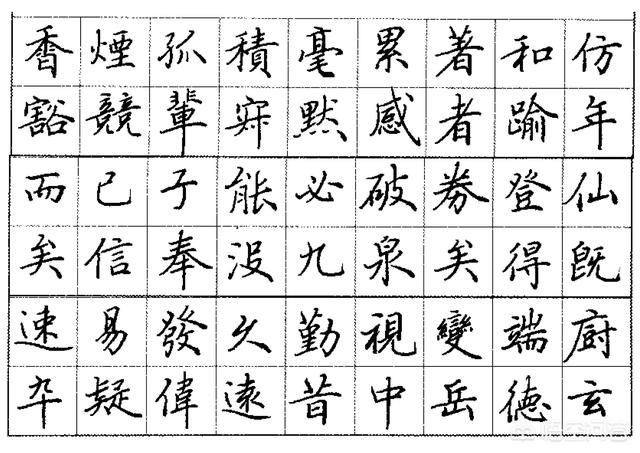 香煙孤積毫累著和仿
豁競輩默感者踰年
而已子能必破券登仙
矣信奉没九泉矣得既
速易發久勤視變端廚
卒疑偉遠昔中岳德玄